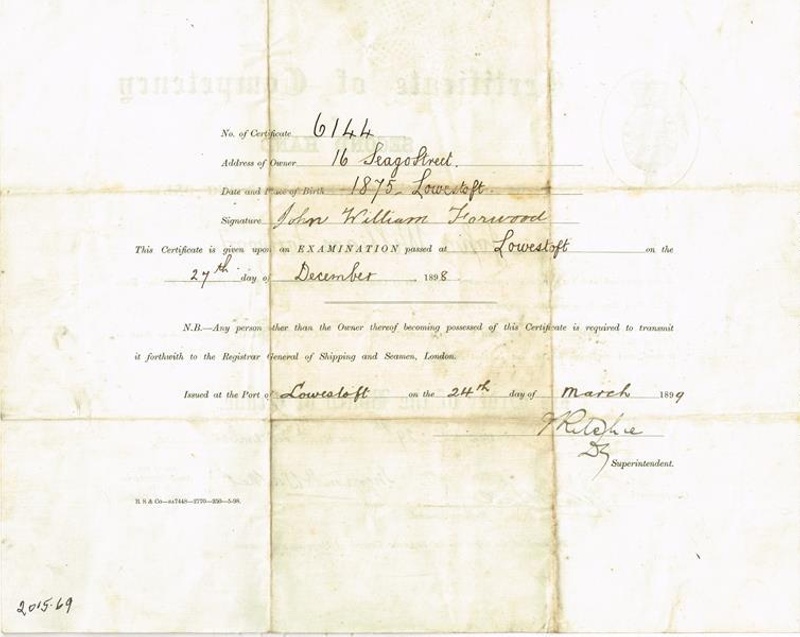 No. of Certificate 6144
Address of Owner 16 Seago Street.
Date and Place of Birth 1875. Lowestoft.
Signature John William Forwood
This Certificate is given upon an EXAMINATION passed at Lowestoft on the
27th day of December 1898
N.B.—Any person other than the Owner thereof becoming possessed of this Certificate is required to transmit
it forthwith to the Registrar General of Shipping and Seamen, London.
Issued at the Port of Lowestoft on the 24th day of March 1899
Ritchie
Dy Superintendent.
2015.69